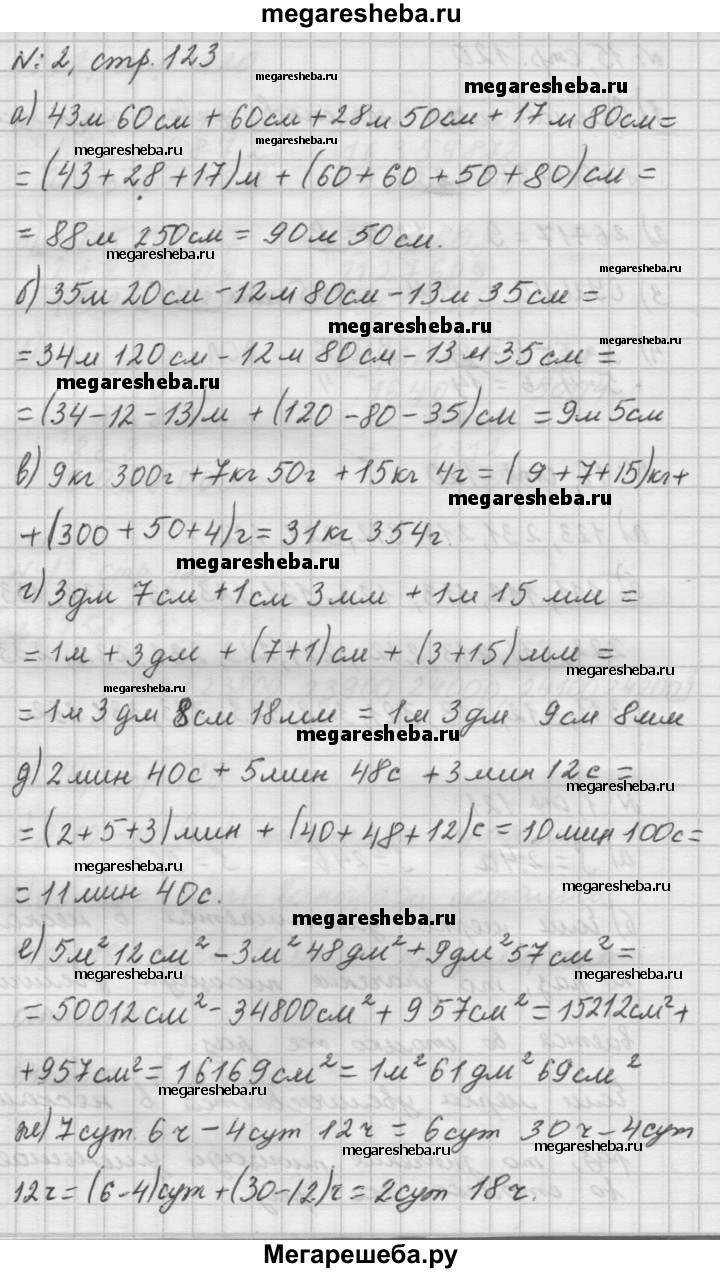 megaresheba.ru
N: 2, стр. 123
megaresheba.ru
megaresheba.ru
а) 43м 60см + 60см + 28м 50см + 17м 80см =
megaresheba.ru
megaresheba.ru
= (43 + 28 + 17)м + (60 + 60 + 50 + 80)см =
= 88м 250см = 90м 50см.
megaresheba.ru
megaresheba.ru
б) 35м 20см - 12м 80см - 13м 35см =
megaresheba.ru
megaresheba.ru
= 34м 120см - 12м 80см - 13м 35см =
megaresheba.ru
= (34 - 12 - 13)м + (120 - 80 - 35)см = 9м 5см
в) 9кг 300г + 7кг 50г + 15кг 4г = (9 + 7 + 15)кг +
megaresheba.ru
+ (300 + 50 + 4)г = 31кг 354г.
megaresheba.ru
г) 3дм 7см + 1см 3мм + 1м 15мм =
= 1м + 3дм + (7 + 1)см + (3 + 15)мм =
megaresheba.ru
megaresheba.ru
= 1м 3дм 8см 18мм = 1м 3дм 9см 8мм
megaresheba.ru
д) 2мин 40с + 5мин 48с + 3мин 12с =
= (2 + 5 + 3)мин + (40 + 48 + 12)с = 10мин 100с =
megaresheba.ru
megaresheba.ru
= 11мин 40с.
megaresheba.ru
е) 5м² 12см² - 3м² 48дм² + 9дм² 57см² =
= 50012см² - 34800см² + 957см² = 15212см² +
+ 957см² = 16169см² = 1м² 61дм² 69см²
megaresheba.ru
ж) 7сут. 6ч - 4сут 12ч = 6сут 30ч - 4сут
megaresheba.ru
megaresheba.ru
12ч = (6 - 4)сут + (30 - 12)ч = 2сут 18ч.
Мегарешеба.ру